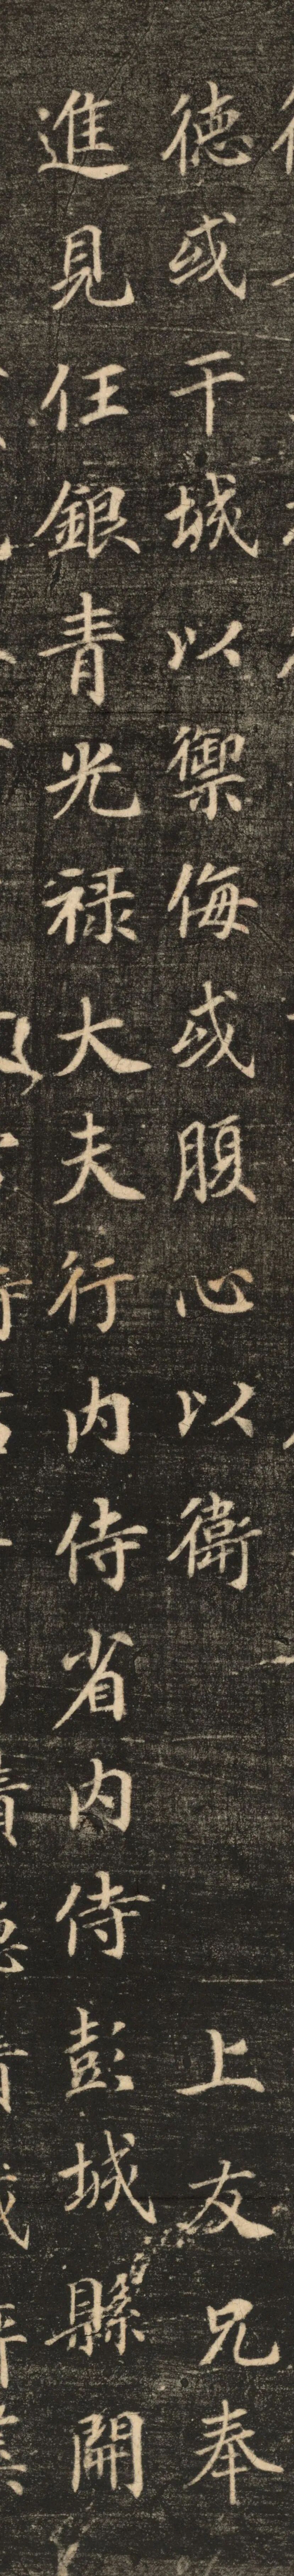 德或干城以禦侮或腹心以衛上友兄奉
進見任銀青光禄大夫行内侍省内侍彭城縣開